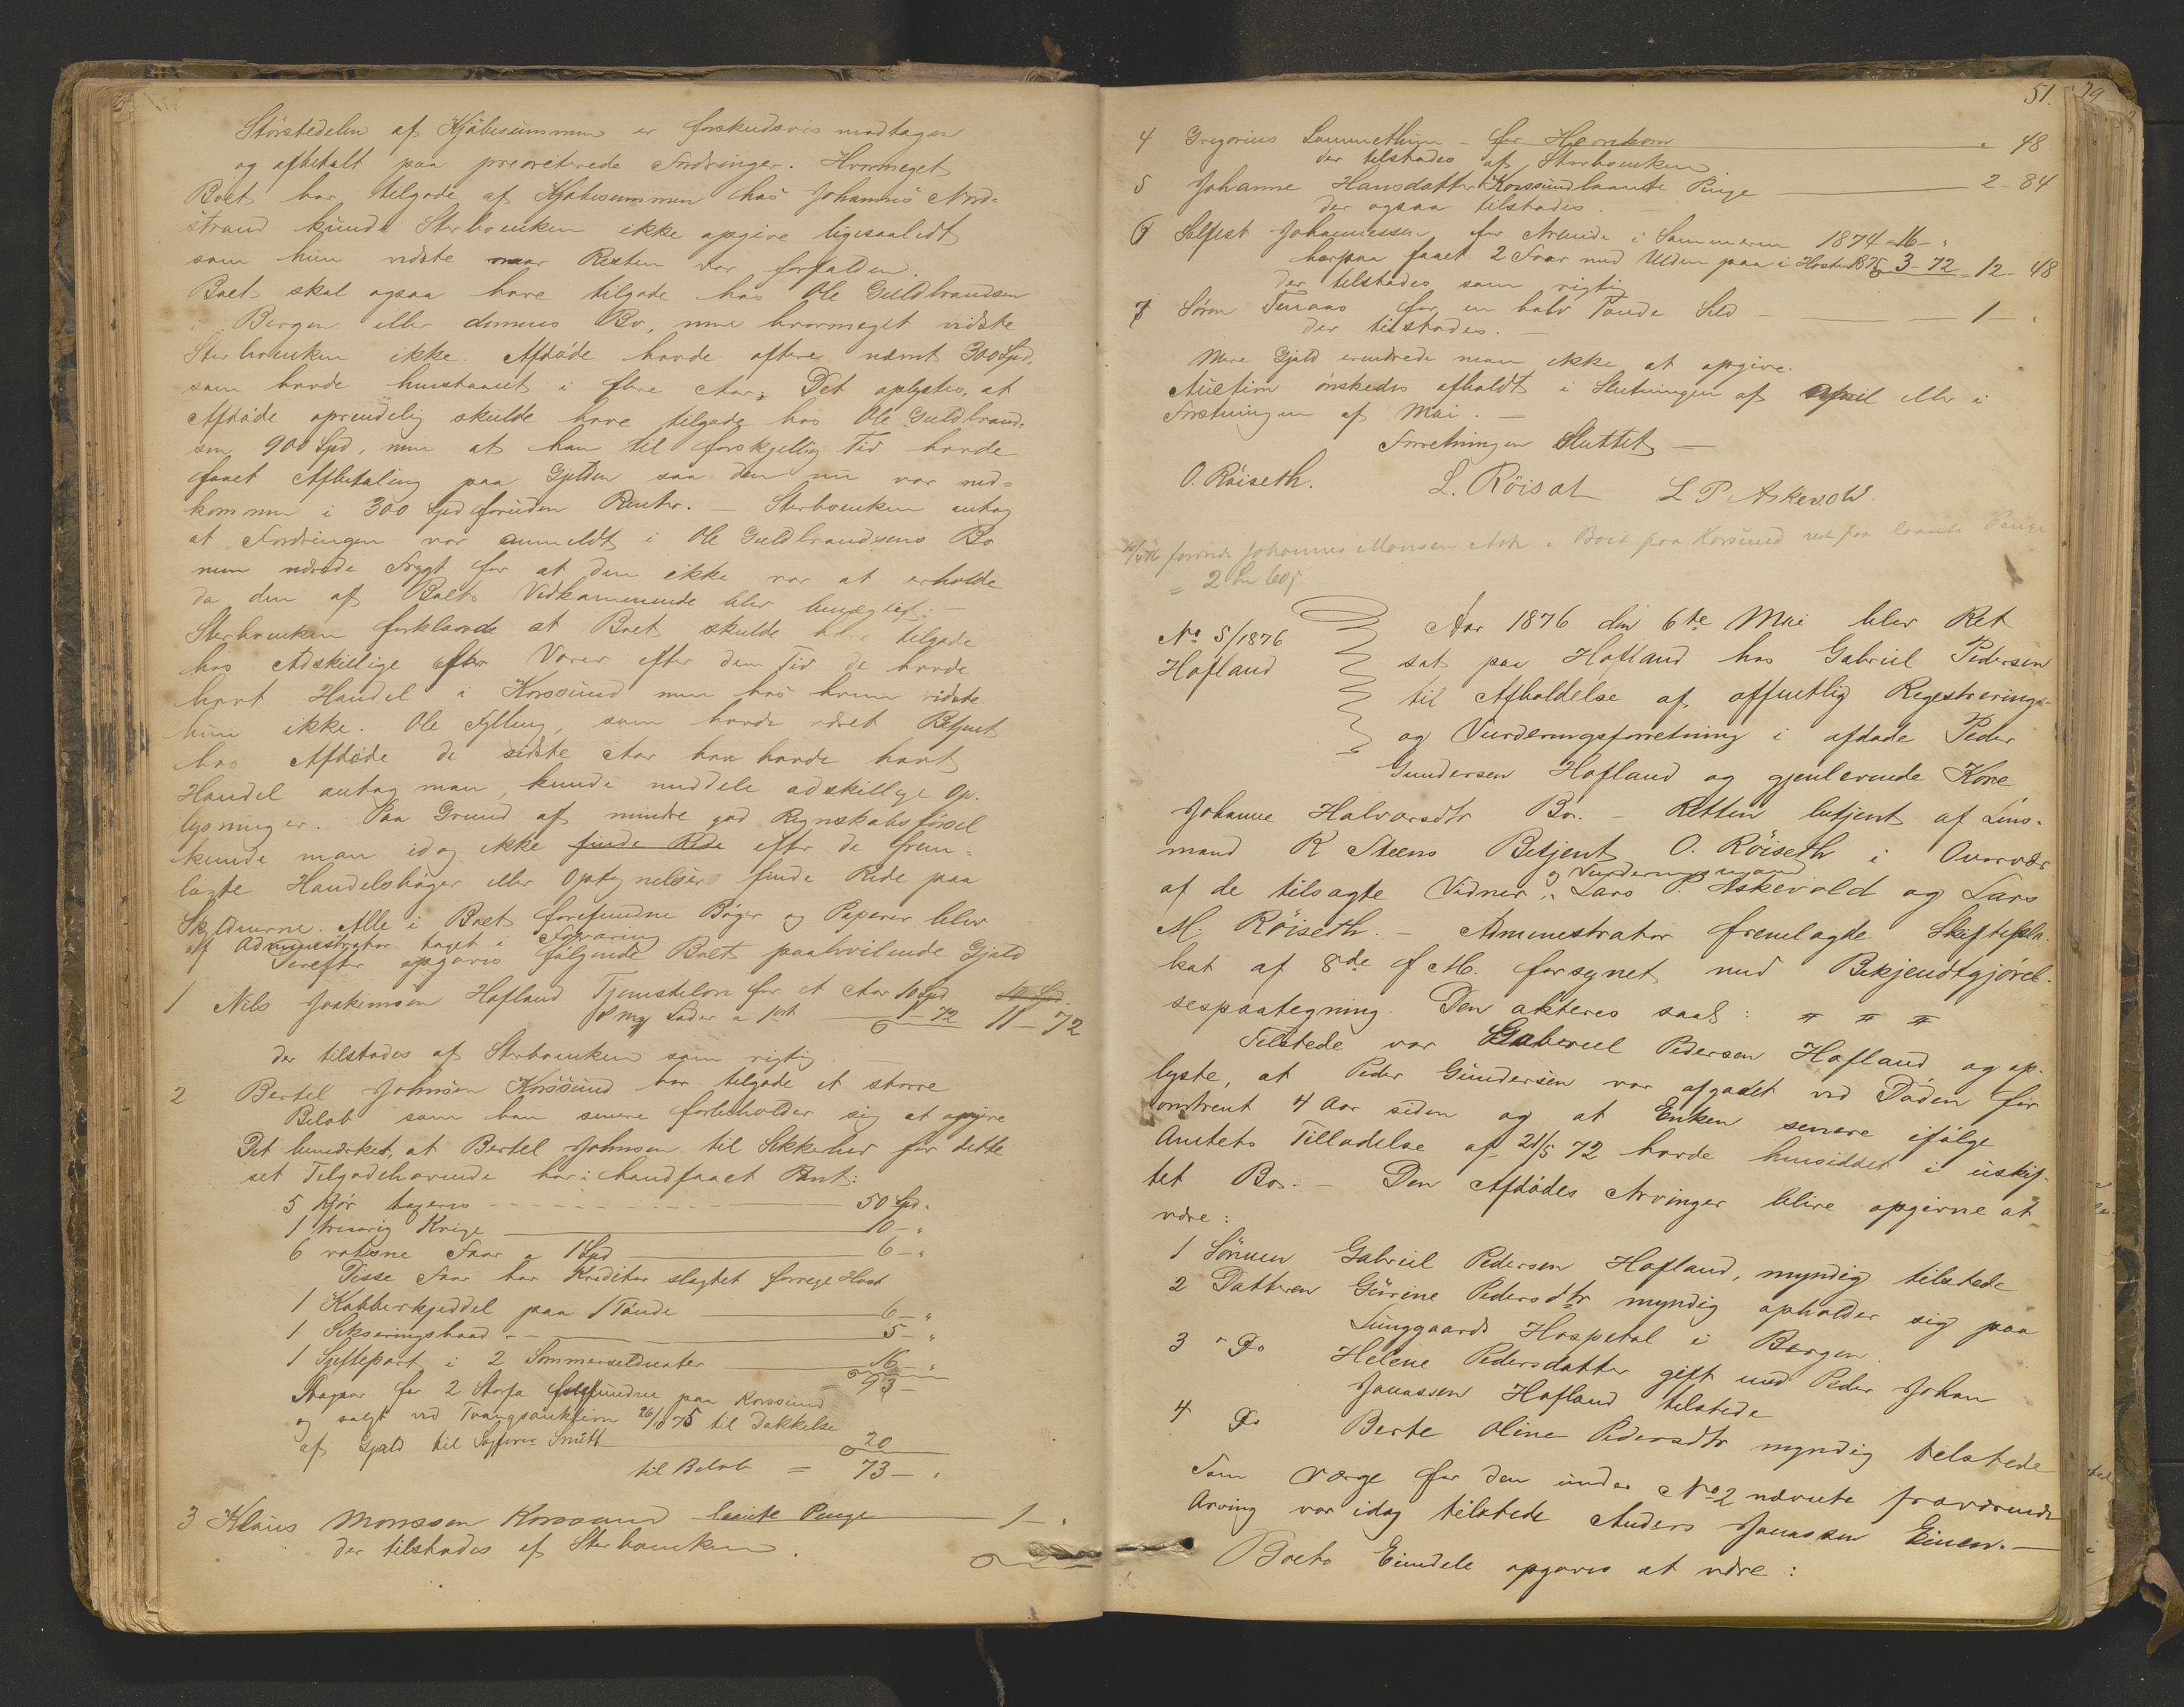 Störstedelen af Kjöbesummen er forskudsvis modtagen
og afbetalt paa preoriterede Fordringer. Hvormeget
Boet har tilgode af Kjöbesummen hos Johannes Nord-
strand kunde Sterboenken ikke opgive ligesaalidt
som hun vidste naar Resten var forfalden.
Boet skal ogsaa have tilgode hos Ole Guldbrandsen
i Bergen eller dennes Bo, men hvormeget vidste
Sterboenken ikke. Afdöde havde oftere nævnt 300 Spd,
som havde henstaaet i flere Aar. Det oplystes, at
Afdöde oprindelig skulde have tilgode hos Ole Guldbrand-
sen 900 Spd, men at han til forskjellig Tid havde
faaet Afbetaling paa Gjelden saa den nu var ned-
kommen i 300 Spd foruden Renter. — Sterboenken antog
at Fordringen var anmeldt i Ole Guldbrandsens Bo
men nærede Frygt for at den ikke var at erholde
da den af Boets Vedkommende blev benægtet. —
Sterboenken forklarede at Boet skulde have tilgode
hos Adskillige efter Varer efter den Tid de havde
havt Handel i Korssund men hos hvem vidste
hun ikke. Ole Fylling, som havde været Betjent
hos Afdöde de sidste Aar han havde havt
Handel antog man, kunde meddele adskillige Op-
lysninger. Paa Grund af mindre god Regnskabsförsel
kunde man idag ikke finde Rede efter de frem-
lagte Handelsböger eller Optegnelser finde Rede paa
Skyldnerne. Alle i Boet forefundne Böger og Papirer blev
af Administrator taget i Forvaring
Derefter opgaves fölgende Boet paahvilende Gjæld
1 Nils Joakimsen Hofland Tjenestelön for et Aar 10 Spd 10 Spd.
1-72 11-72
der tilstodes af Sterboenken som rigtig
2 Bertel Johnsen Korssund har tilgode et större
Belöb som han senere forbeholder sig at opgive
Det bemærkes, at Bertel Johnsen til Sikkerhed for dette
sit Tilgodehavende har i haandfaaet Pant:
5 Kjör tageres 50 Spd.
1 treaarig Kvige 10 - "
6 voksne Faar a 1 Spd 6 - "
Disse Faar har Kreditor slagtet forrige Höst
1 Kobberkjeddel paa 1 Tönde 6 - "
1 Sekseringsbaad 5 - "
1 Skiftepart i 2 Sommersildnoter 16 - "
93 -
for 2 Storfæ forefundne paa Korssund
og solgt ved Tvangsauktion 26/10 75 til Dækkelse
af Gjæld til Sagförer Smitt 20
til Belöb = 73 - "
3 Klaus Monssen Korssund laante Penge 1 - "
der tilstodes af Sterboenken.
51.
4 Gregorius Lammethun - for Hornkom " 48
der tilstodes af Sterboenken
5 Johanne Hansdatter Korssund laante Penge 2 - 84
der ogsaa tilstodes.
6 Salfest Johannessen for Arbeide i Sommeren 1874 - 16 - "
herpaa faaet 2 Faar med Ulden paa i Hösten 1875 3 - 72 12 - 48
der tilstodes som rigtig
7 Sören Tenaas for en halv Tönde Sild 1 - "
der tilstodes. —
Mere Gjæld erindrede man ikke at opgive.
Auction önskedes afholdt i Slutningen af April eller i
Forstningen af Mai. —
Forretningen Sluttet —
O. Röiseth. L. Röiset L P Askevold.
Johannes Monsen Boet fra Korssund paa laante Penge
= 2
No 5/1876
Hofland
Aar 1876 den 6te Mai blev Ret
sat paa Hofland hos Gabriel Pedersen
til Afholdelse af offentlig Regestrerings-
og Vurderingsforretning i afdöde Peder
Gundersen Hofland og gjenlevende Kone
Johanne Halvorsdtr Bo. — Retten betjent af Lens-
mand K Steens Betjent O. Röiseth i Overvær
af de tilsagte Vidner og Vurderingsmænd Lars P. Askevold og Lars
M. Röiseth. — Administrator fremlagte Skiftepla-
kat af 8de f. M. forsynet med Bekjendtgjörel-
sespaategning. Den akteres saal: # # #
Tilstede var Gabriel Pedersen Hofland, og op-
lyste, at Peder Gundersen var afgaaet ved Döden for
omtrent 4 Aar siden og at Enken senere ifölge
Amtets Tilladelse af 21/5 72 havde hensiddet i uskif-
tet Bo. — Den Afdödes Arvinger blive opgivne at
være:
1 Sönnen Gabriel Pedersen Hofland, myndig tilstede
2 Datteren Gurine Pedersdtr myndig opholder sig paa
Lunggaards Hospetal i Bergen.
3 " Do Helene Pedersdatter gift med Peder Johan
Janassen Hofland tilstede
4 Do Berte Oline Pedersdtr myndig tilstede
Som Værge for den under No 2 nævnte fraværende
Arving var idag tilstede Anders Janassen Einen. —
Boets Eiendele opgaves at være: